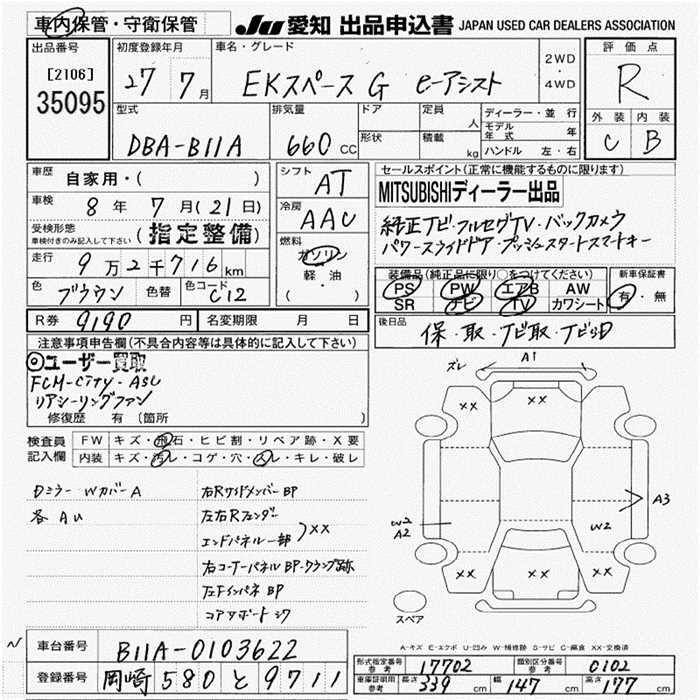 車内保管・守衛保管
JU 愛知 出品申込書 JAPAN USED CAR DEALERS ASSOCIATION
出品番号
[2106]
35095
初度登録年月
27 7月
車名・グレード
EKスペース G e-アシスト
2WD
4WD
評価点
R
外装 内装
C B
型式
DBA-B11A
排気量
660 CC
ドア
形状
定員
人
積載
kg
ディーラー・並行
モデル年式 年
ハンドル 左・右
車歴 自家用・( )
車検 8年 7月(21日)
受検形態
車検付きのみ記入して下さい
(指定整備)
走行 9万2千716km
色 ブラウン 色替 色コード C12
シフト
AT
冷房
AAC
燃料
ガソリン
軽・油
( )
セールスポイント(正常に機能するものに限ります)
MITSUBISHIディーラー出品
純正ナビ・フルセグTV・バックカメラ
パワースライドドア・プッシュスタートスマートキー
装備品(純正品に限り○をつけてください)
PS PW エアB AW
SR ナビ TV カワシート
新車保証書
有・無
R券 9190 円 名変期限 月 日
後日品
保・取・ナビ取・ナビSD
注意事項申告欄(不具合内容等は具体的に記入して下さい)
◎ユーザー買取
FCM-CITY・ASC
リアシーリングファン
修復歴 有(箇所 )
検査員記入欄
FW キズ・飛石・ヒビ割・リペア跡・X要
内装 キズ・汚レ・コゲ・穴・スレ・キレ・破レ
Dミラー WカバーA
各 AU
右RサイドメンバーBP
左右Rフェンダー
エンドパネル一部 )XX
右コーナーパネルBP・クランプ跡
左FインパネBP
コアサポートシワ
ズレ A1
XX XX
A3
W2 A2
W2
XX XX XX
スペア
A-キズ E-エクボ U-凹み W-補修跡 S-サビ C-腐食 XX-交換済
車台番号 B11A-0103622
登録番号 岡崎 580 と 9711
形式指定番号 参考 17702
類別区分番号 参考 0102
車庫証明用 参考 長さ 339 cm 幅 147 cm 高さ 177 cm